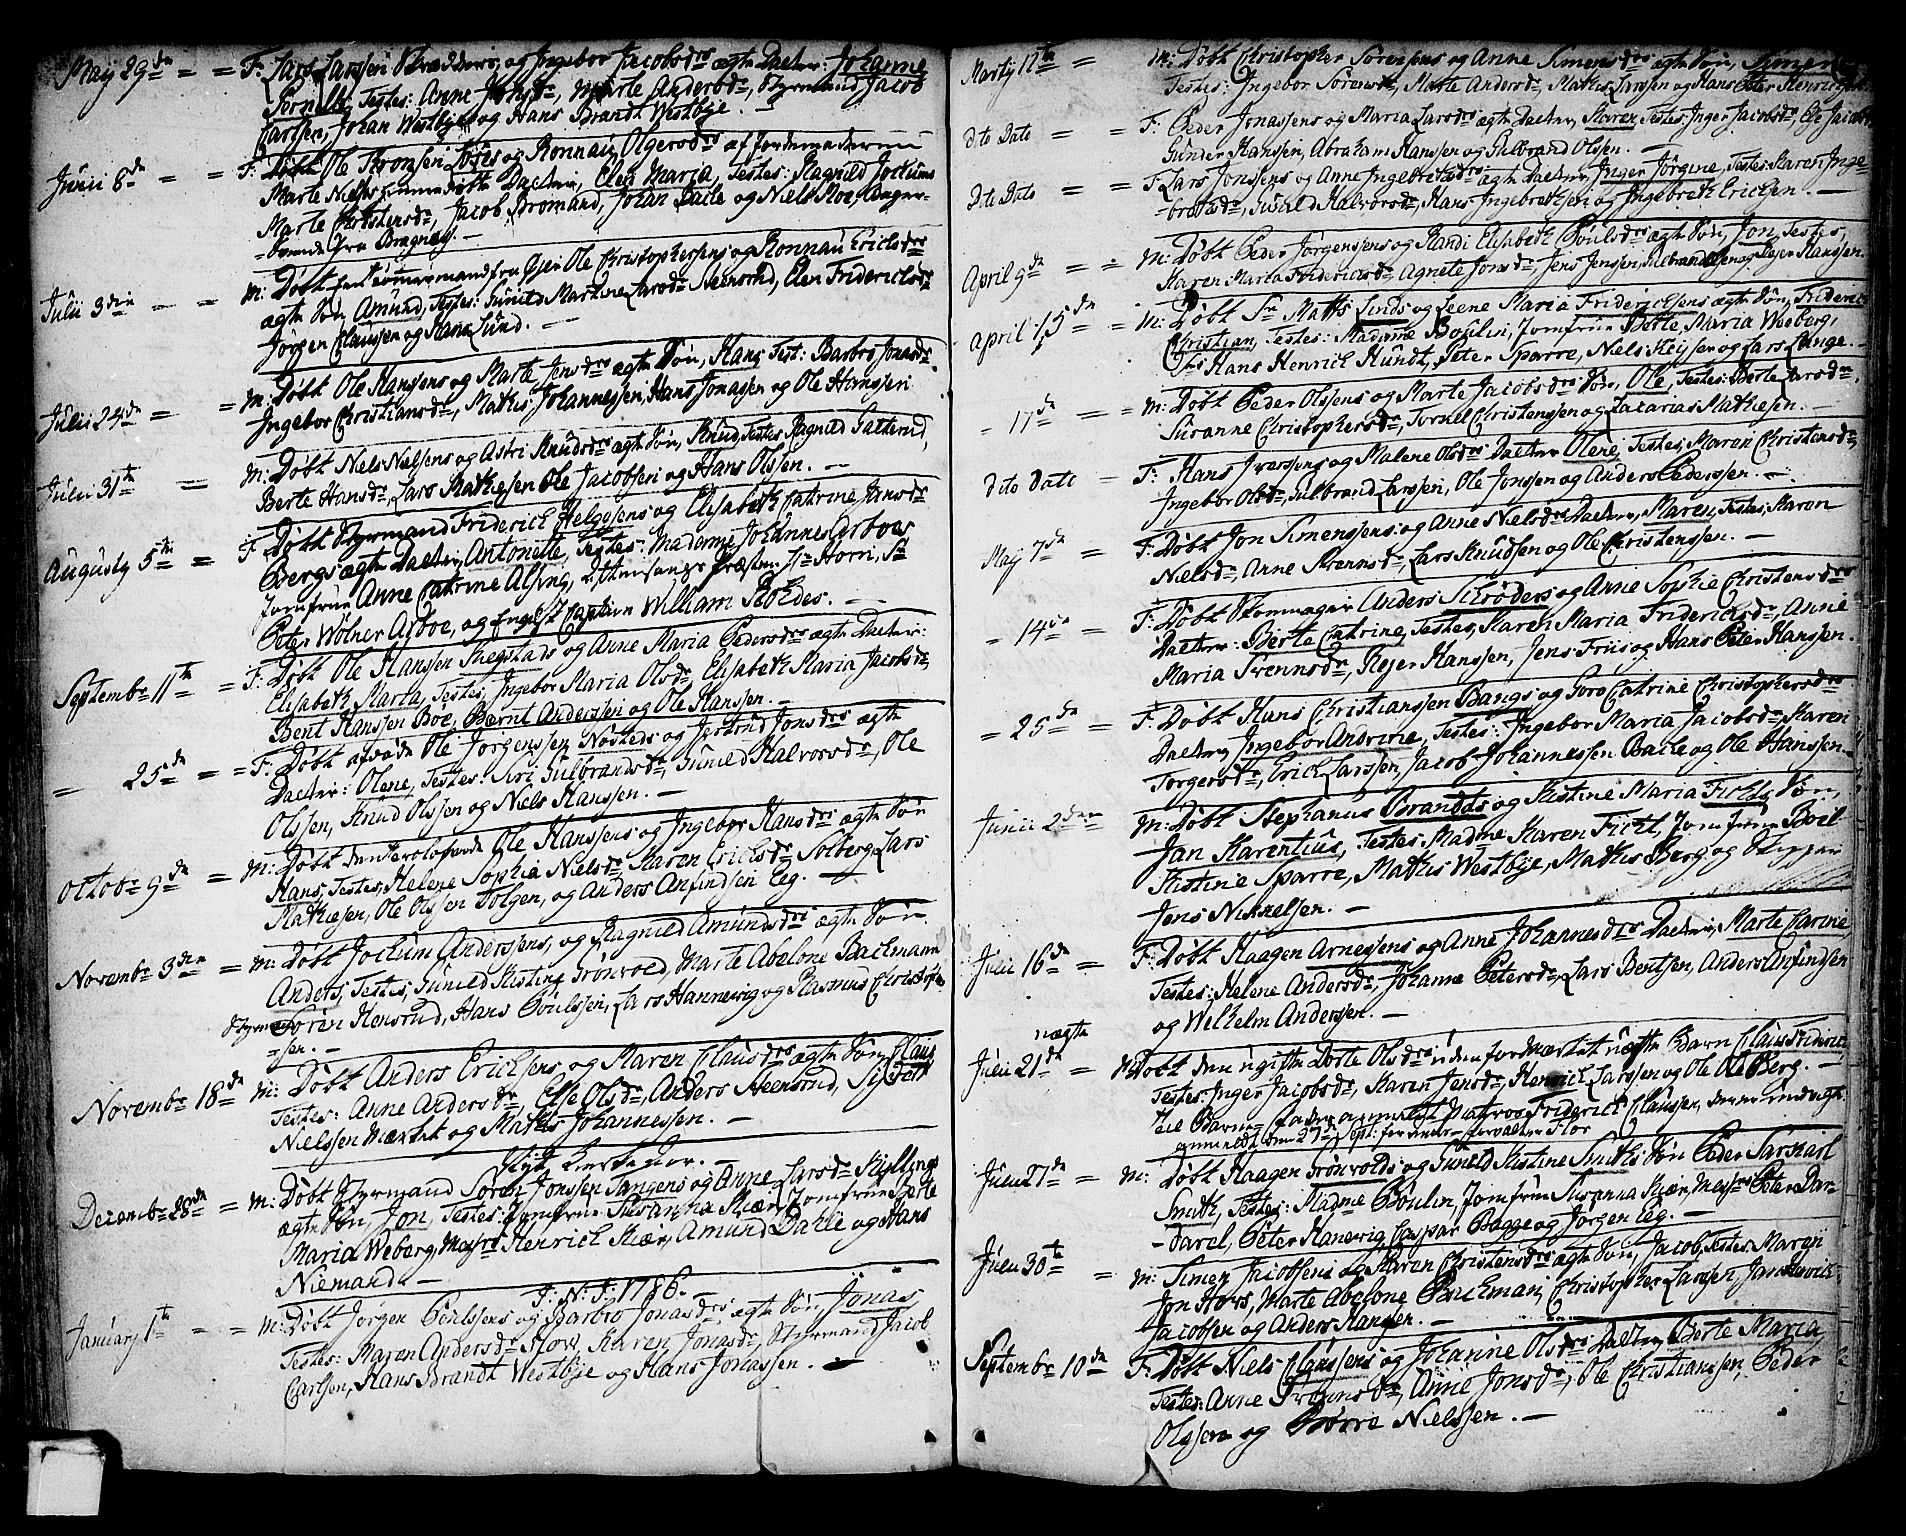 May 29de = = F: Lars Larssen Skrædders, og Ingebor Jacobsdrs ægte Datter: Johanne
Pernille, Testes: Anne Jonsdr, Marte Andersdr, Styrmand Jacob
Carlsen, Johan Westbye og Hans Brandt Westbye.
Junii 8de = = F: Døbt Ole Thronsen og Ronnau Olgersdrs af Jordemoderen
Marte Niels hiemmedøbte Datter, Elen Maria, Testes: Ragnild Jochums
Marte Christensdr, Jacob Bromand, Johan Baile og Niels Moe Anger-
-boende fra Bragnæs. -
Julii 3die = = M: Døbt Tømmermand fra Gjer Ole Christophersens og Ronnau Erichsdrs
ægte Søn, Amund, Testes: Gunild Martine Larsdr Steensrud, Elen Friderichsdr
Jørgen Claussen og Hans Lund. -
Julii 24de = = M: Døbt Ole Hanssens og Marte Jensdrs ægte Søn, Hans, Test: Barbro Jonasdr
Ingebor Christiansdr, Mathis Johannessen, Hans Jonasen og Ole Hanssen
Julii 31te = M: Døbt Niels Nielsens og Astri Knudsdrs ægte Søn, Knud, Testes Ragnild Galterud,
Berte Hansdr, Lars Mathiesen Ole Jacobsen og Hans Olssen. -
Augusty 5te = F: Døbt Styrmand Friderich Helgesens og Elisabeth Catrine Jansdr
Bergs ægte Datter, Antonette, Testes: Madame Johannes Arboes
Jomfrue Anne Catrine Alsing, Præsten Hr Horn, Sr
Peter Wølner Arboe, og Engelsk Captein William Stokdes. -
Septembr 11te = F: Døbt Ole Hanssen Skegstads og Anne Maria Pedersdrs ægte Datter:
Elisabeth Marta, Testes, Ingebor Maria Olsdr, Elisabeth Maria Jacobsdr,
Bent Hanssen Boe, Bernt Anderssen og Ole Hanssen. -
= 25de = = F: Døbt Ole Jørgenssen Nosteds og Jertrud Jonsdrs ægte
Datter: Olene, Testes: Siri Gulbrandsdr, Gunild Halvorsdr, Ole
Olssen, Knud Olssen og Niels Hanssen. -
Octobr 9de = M: Døbt Ole Hanssens og Ingebor Hansdrs ægte Søn
Hans, Testes, Helene Sophia Nielsdr, Karen Erichsdr Solberg, Lars
Mathiesen, Ole Olssen Tolgen, og Anders Anfindsen Eeg. -
Novembr 3die = M: Døbt Jochum Anderssens, og Ragnild Amundsdrs ægte Søn
Anders, Testes, Gunild Kistine Grønvold, Marte Abelone Bachmann
Styrmand Søren Hensrud, Hans Povlssen, Lars Hannevig og Rasmus Christophe
-sen. -
Novembr 18de = M: Døbt Anders Erichsens og Maren Clausdrs ægte Søn, Claus
Testes: Anne Andersdr, Else Olsdr, Anders Steensrud, Sifvert
Nielssen Mærket og Mathis Johannessen. -
Nyt Kirke Aar. -
Decembr 28de = M: Døbt Styrmand Søren Jonssen Tangens og Anne Larsdr Kyllings
ægte Søn, Jon, Testes: Jomfrue Susanna Skiær, Jomfrue Berte
Maria Weberg, Mesrs Henrich Skiær, Amund Dahle og Hans
Niemand. -
J: N: J: 1786. -
January 1te = = M: Døbt Jørgen Povlssens og Barbro Jonasdrs, ægte Søn, Jonas,
Testes: Maren Andersdr Stow, Karen Jonasdr, Styrmand Jacob
Carlsen, Hans Brandt Westbye og Hans Jonassen. -
Marty 12te = M: Døbt Christopher Sørenssens og Anne Simensdrs ægte Søn, Simen
Testes: Ingebor Sørensdr, Marte Andersdr, Mathis Larssen og Hans Peter Henrichsen
dto Dato = = F: Peder Jonassens og Maria Larsdrs ægte Datter, Karen, Testes: Inger Jacobsdr, Ele Jacobsdr
Gunder Hanssen, Abraham Hanssen og Gulbrand Olssen. -
Dto Dato = = F: Lars Jonssens og Anne Ingebretsdrs ægte Datter, Inger Jørgine, Testes: Karen Inge-
-bretsdr, Gunild Halvorsdr, Hans Ingebrethsen og Ingebreth Erichsen. -
April 9de = = M: Døbt Peder Jørgenssens og Randi Elisabeth Povlsdrs ægte Søn, Jon, Testes,
Karen Maria Friderichsdr, Agnete Jonsdr, Jens Jenssen, Gulbrand Olssen og Rejer Hanssen.
April 15de = = M: Døbt Sr Mathis Linds og Leene Maria Friderichsens ægte Søn, Frideric
Christian, Testes: Madame Boulin, Jomfrue Berte, Maria Weeberg,
Hans Henrich Hundt, Peter Sparre, Niels Keysen og Lars Lange. -
= 17de = = M: Døbt Peder Olssens og Marte Jacobsdrs Søn, Ole, Testes: Berte Larsdr
Susanne Christophersdr, Tornel Christenssen og Zacarias Mathiesen. -
dito Dato = F: Hans Iverssens og Malene Olsdrs Datter Olene, Testes: Maren Christensdr,
Ingebor Olsdr, Gulbrand Larssen, Ole Jonssen og Anders Pederssen. -
May 7de = F: Døbt Jon Simenssens og Anne Nielsdrs Datter, Maren, Testes, Karen
Nielsdr, Anne Svennsdr, Lars Knudsen og Ole Christenssen. -
= 14de = F: Døbt Skomager Anders Schrøders og Anne Sophie Christensdrs
Datter: Berte Catrine, Testes, Karen Maria Friderichsdr, Anne
Maria Svennsdr, Rejer Hanssen, Jens Friis og Hans Peter Hanssen.
= 25de = F: Døbt Hans Christianssen Bangs og Goro Catrine Christophersdrs
Datter, Ingebor Andrine, Testes: Ingebor Maria Jacobsdr, Karen
Torgersdr, Erich Larssen, Jacob Johannessen Baile og Ole Hanssen-
Junii 2den M: Døbt Stephanus Brandts og Kistine Maria Ficht, Søn,
Jan Karentius, Testes: Madme Karen Ficht, Jomfrue Boil-
Kistine Sparre, Mathis Westbye, Mathis Berg og Skipper
Jens Nikkelsen. -
Julii 16de = F: Døbt Haagen Arnessens og Anne Johannesdrs Datter, Marte Carine
Testes: Helene Andersdr, Johanne Petersdr, Lars Bentsen, Anders Anfindsen
og Wilhelm Anderssen. -
uægte
Julii 21de = M: Døbt den ugifte Dorte Olsdrs uden for Mærket uægte Barn Claus Frideric,
Testes: Inger Jacobsdr, Karen Jensdr, Henrich Larssen og Ole Olsberg. -
til Barne-fader angivet Matros Friderich Claussen,
anmeldt den 27de Sept: for Flor
Julii 27de = M: Døbt Haagen Grønvolds og Gunild Kistine Smiths Søn Peder Sarskarl
Smith, Testes: Madme Boulin, Jomfrue Susanna Skiær, Mesrs Peter Dar-
-Darel, Peter Hanevig, Caspar Bagge og Jørgen Eeg. -
Julii 30te = M: Simen Jacobsens og Karen Christensdrs ægte Søn, Jacob, Testes: Maren
Jon Hovs, Marte Abelone Bachman, Christopher Larssen, Jan Henrich
Jacobsen og Anders Hanssen. -
Septembr 10de F: Døbt Niels Claussens og Johanne Olsdrs Datter, Berte Maria
Testes: Anne Svennsdr, Anne Jonsdr, Ole Christianssen, Peder
Olssen og Børre Nielssen. -